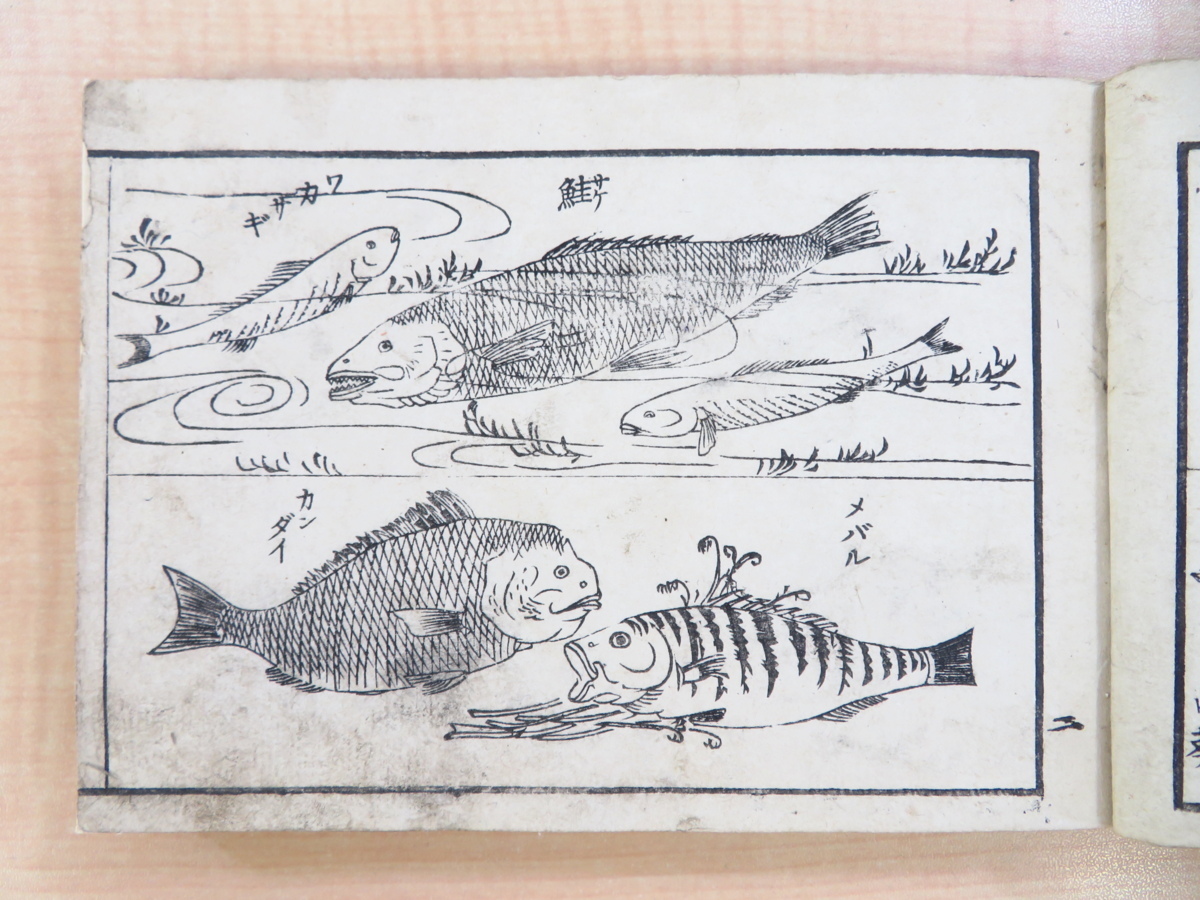 鮭サケ
ワカサギ
メバル
カンダイ